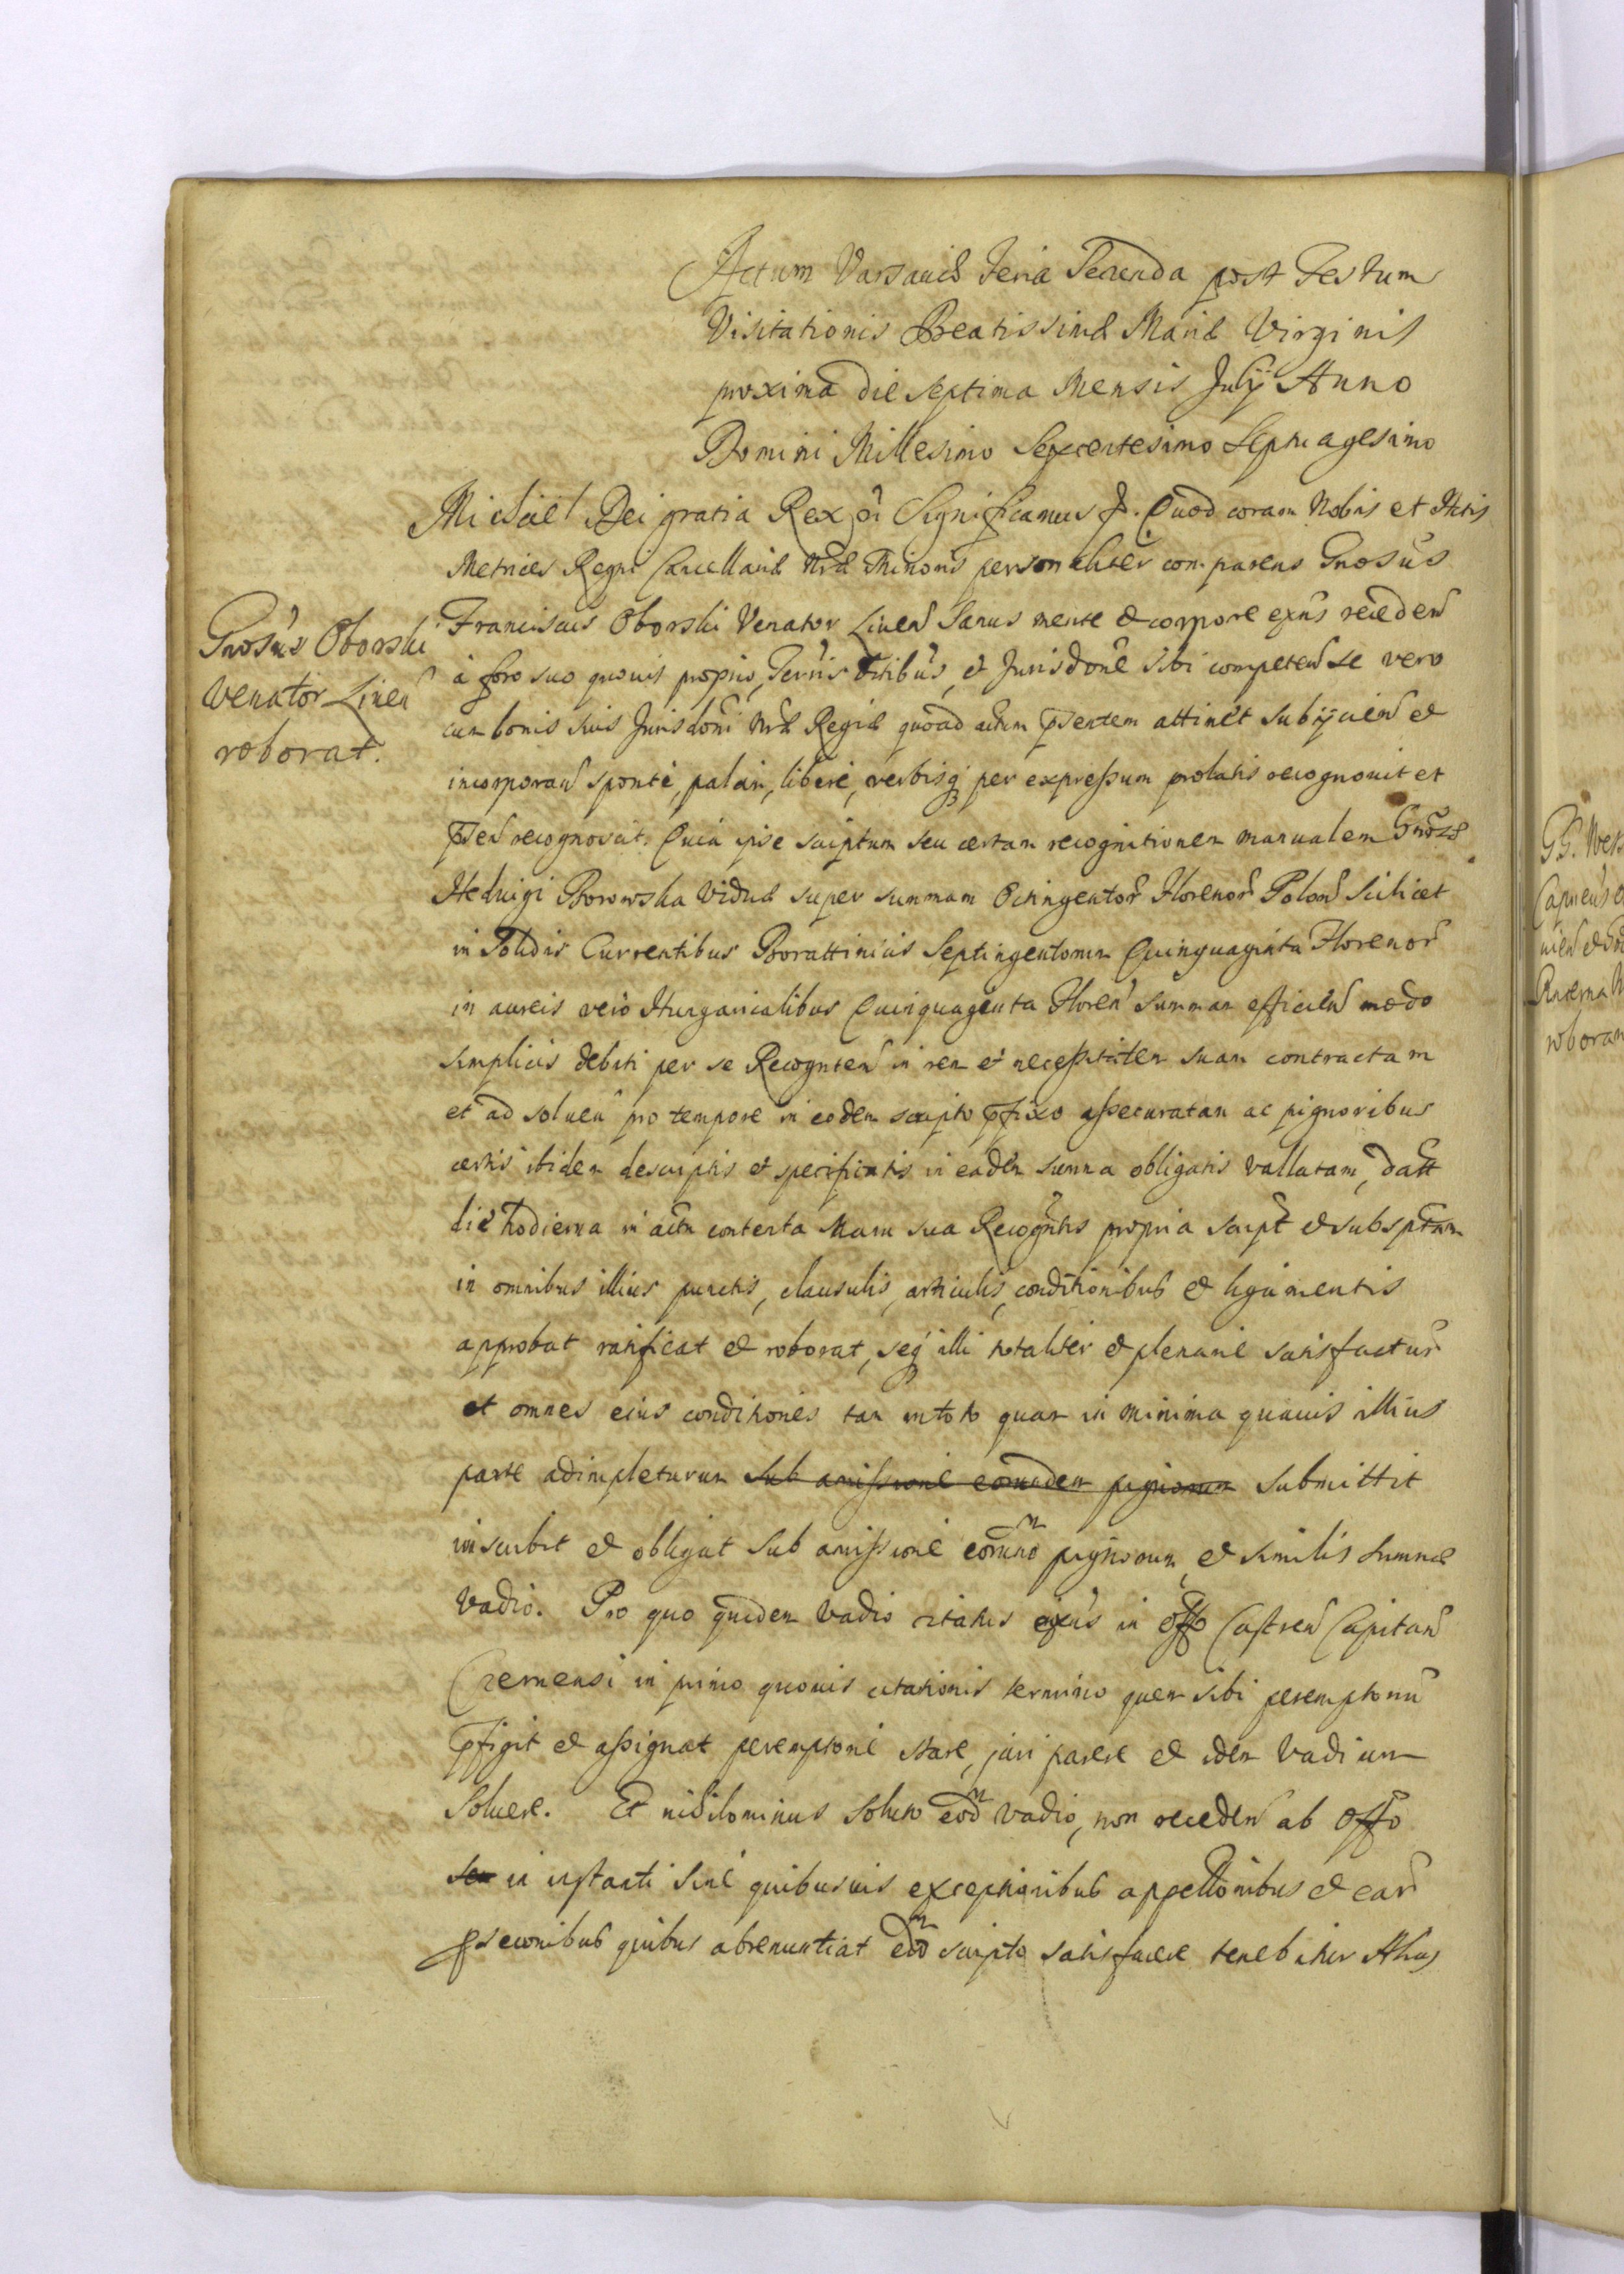 Actum Varsaviæ Feria Secunda post Festum
Visitationis Beatissimæ Mariæ Virginis
proxima die septima Mensis Julij Anno
Domini Millesimo Sexcentesimo Septuagesimo
Michael Dei gratia Rex Significamus Quod coram Nobis et Actis
Metrices Regni Cancellariæ Nræ Minoris personaliter comparens Gnosus
Gnosus Oborski
Venator Liven
roborat.
Franciscus Oborski Venator Liven Sanus mente et corpore exns receden
à foro suo quovis proprio, Terris Ditibus, et Jurisdone sibi competen se vero
cum bonis suis Jurisdoni Nræ Regiæ quoad actum pntem attinet subijcien et
incorporan sponte, palam, libere, verbisq per expressum prolatis recognovit et
recognoscit. Quia ipse scriptum seu certam recognitionem manualem Gnosæ
Hedvigi Borowska Viduæ super summam Octingentor Florenor Polon Scilicet
in Solidis Currentibus Borattinicis Septingentorum Quinquaginta Florenor
in aureis vero Hungaricalibus Quinquaginta Floren summam efficien modo
simplicis debiti per se Recognten in rem et necessitatem suam contractam
et ad solven pro tempore in eodem scripto pfixo assecuratam ac pignoribus
certis ibidem descriptis et specificatis in eadem summa obligatis vallatam, datt
die hodierna in actu contenta Manu sua Recogntis propria script et subsptam
in omnibus illius punctis, clausulis, articulis, conditionibus et ligamentis
approbat ratificat et roborat, seq illi totaliter et plenarie satisfactur
et omnes eius conditiones tam in toto quam in minima quavis illius
parte adimpleturum sub amissione eorundem pignorum submittit
inscribit et obligat sub amissione pignorum et similis summæ
vadio. Pro quo quidem vadio citatus in Offo Castren Capitan
Cernensi in primo quovis citationis termino quem sibi peremptorium
pfigit et assignat peremptorie stare, juri parere et idem vadium
solvere. Et nihilominus soluto eod vadio, non receden ab Offo
seu in instanti sine quibusvis exceptionibus appellonibus et ear
psecionibus quibus abrenuntiat scripto satisfacere tenebitur Actus